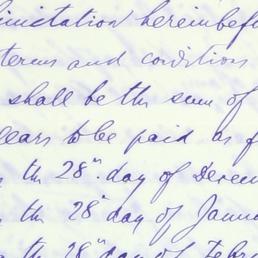 limitation hereinbef
terms and condition
shall be the sum of
to be paid as f
the 28th day of Decem
the 28th day of Janu
the 28th day of Febr